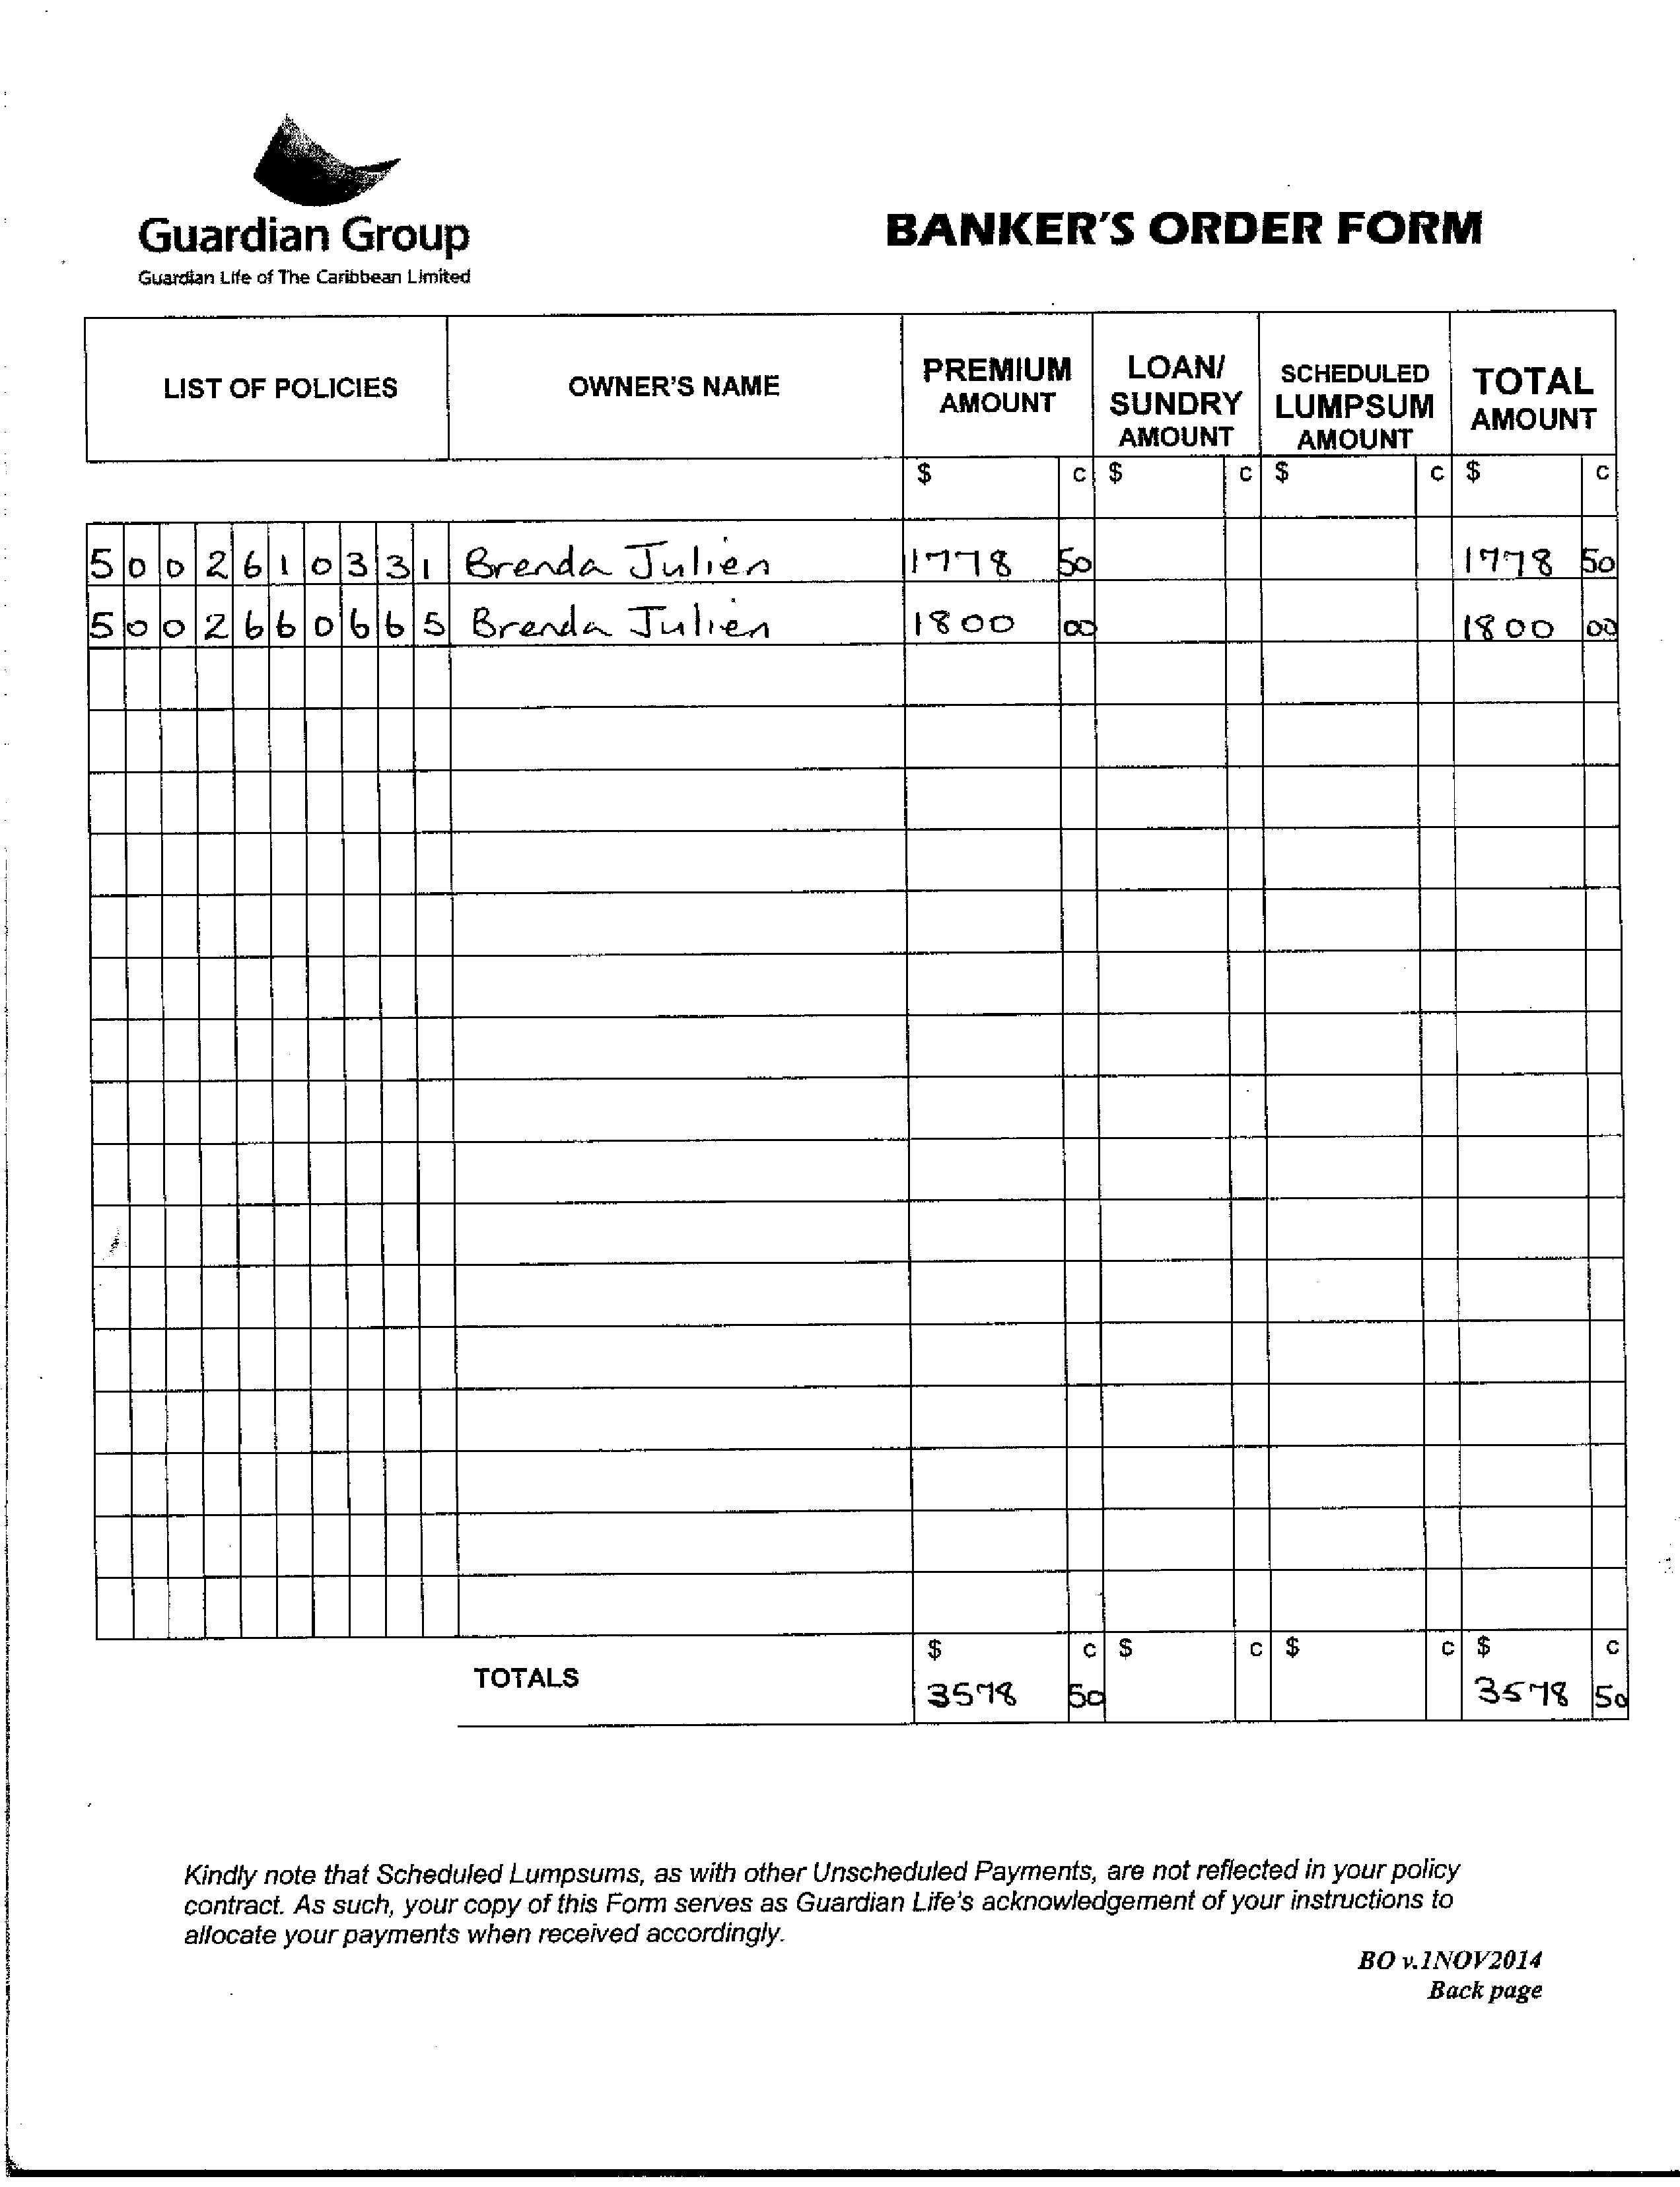 Guardian Group
Guardian Life of The Caribbean Limited
BANKER'S ORDER FORM
LIST OF POLICIES OWNER'S NAME PREMIUM AMOUNT LOAN/ SUNDRY AMOUNT SCHEDULED LUMPSUM AMOUNT TOTAL AMOUNT
$ c $ c $ c $ c
5002610331 Brenda Julien 1778 50 1778 50
5002660665 Brenda Julien 1800 00 1800 00
$ c $ c $ c $ c
TOTALS 3578 50 3578 50
Kindly note that Scheduled Lumpsums, as with other Unscheduled Payments, are not reflected in your policy
contract. As such, your copy of this Form serves as Guardian Life's acknowledgement of your instructions to
allocate your payments when received accordingly.
BO v.1NOV2014
Back page